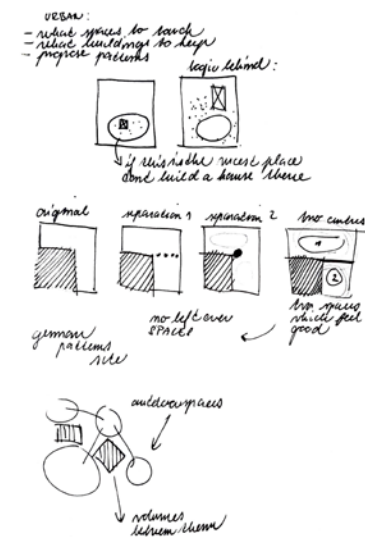 URBAN:
- what spaces to touch
- what buildings to keep
- propose patterns
logic behind:
if this is the nicest place
dont build a house there
original
separation 1
separation 2
two centers
1
2
german
patterns
site
no left over
SPACES
two spaces
which feel
good
outdoorspaces
volumes
between them